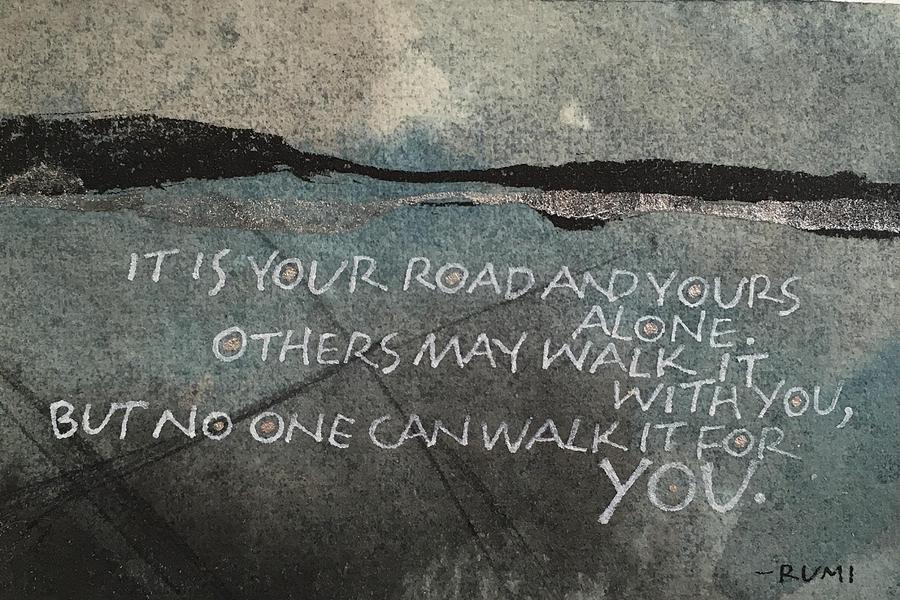 IT IS YOUR ROAD AND YOURS
ALONE.
OTHERS MAY WALK IT
WITH YOU,
BUT NO ONE CAN WALK IT FOR
YOU.
-RUMI